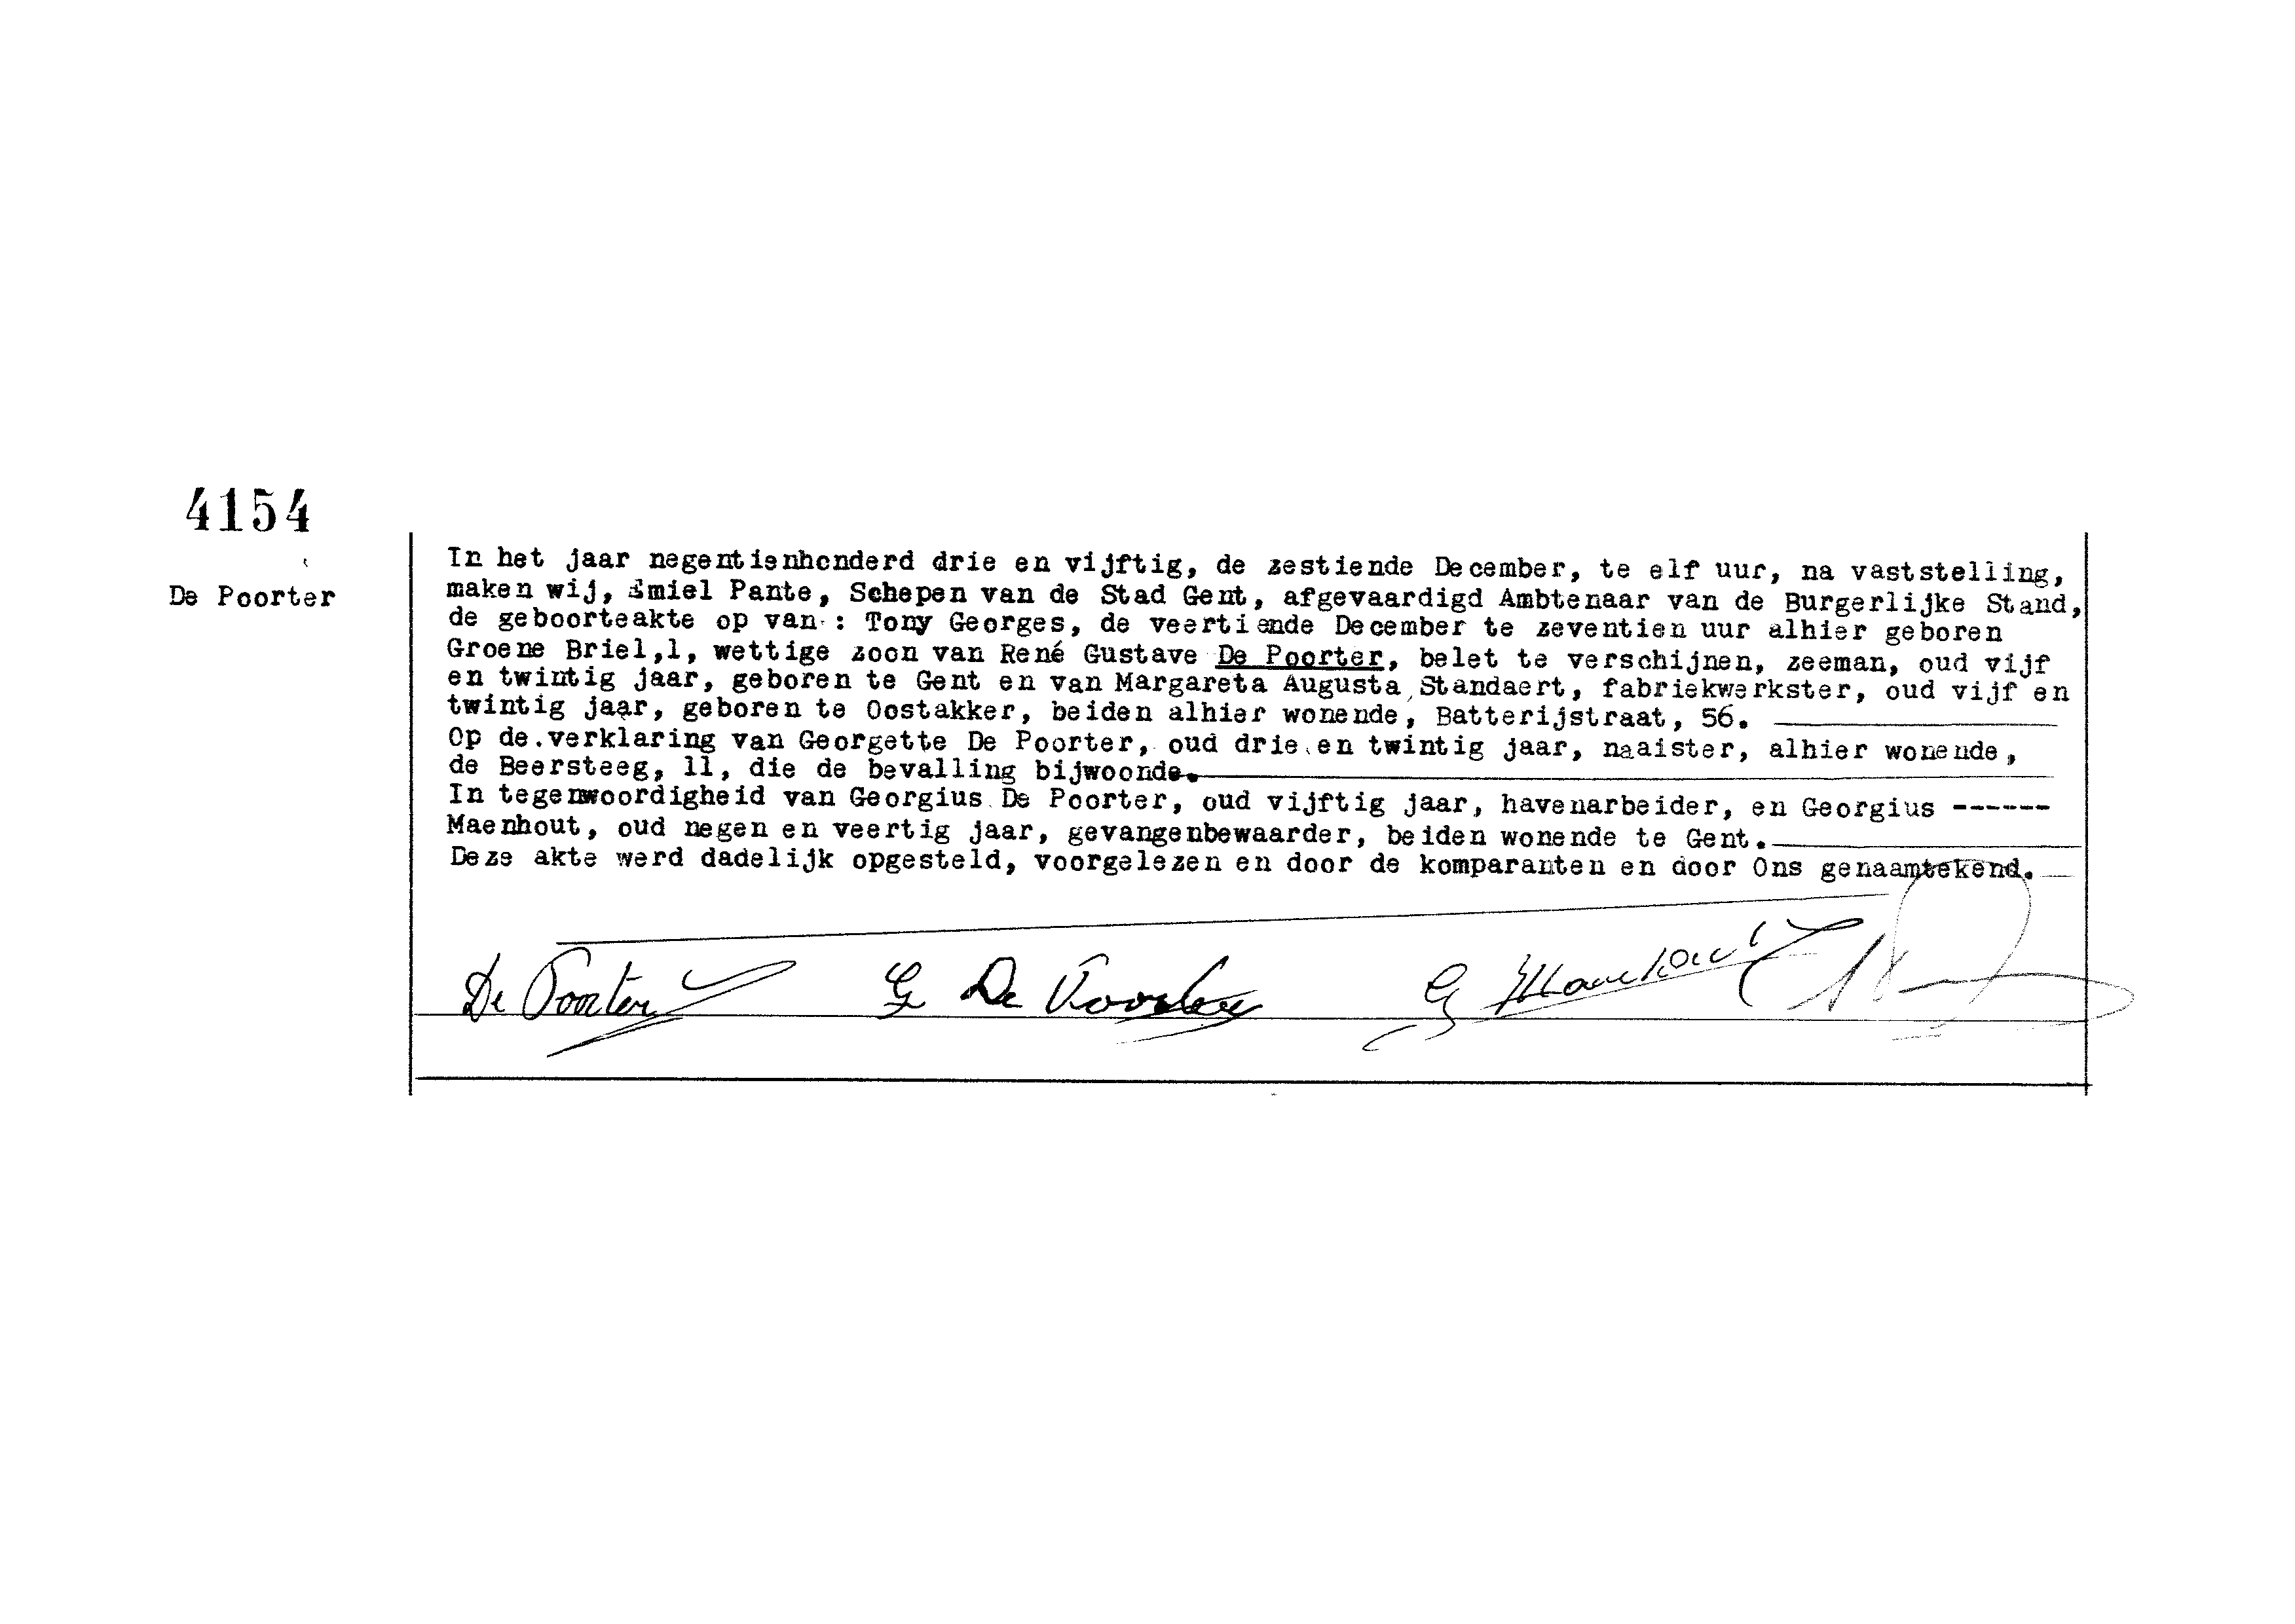 4154
De Poorter
In het jaar negentienhonderd drie en vijftig, de zestiende December, te elf uur, na vaststelling,
maken wij, Emiel Pante, Schepen van de Stad Gent, afgevaardigd Ambtenaar van de Burgerlijke Stand,
de geboorteakte op van : Tony Georges, de veertiende December te zeventien uur alhier geboren
Groene Briel,1, wettige zoon van René Gustave De Poorter, belet te verschijnen, zeeman, oud vijf
en twintig jaar, geboren te Gent en van Margareta Augusta Standaert, fabriekwerkster, oud vijf en
twintig jaar, geboren te Oostakker, beiden alhier wonende, Batterijstraat, 56.
Op de verklaring van Georgette De Poorter, oud drie en twintig jaar, naaister, alhier wonende,
de Beersteeg, 11, die de bevalling bijwoonde.
In tegenwoordigheid van Georgius De Poorter, oud vijftig jaar, havenarbeider, en Georgius ------
Maenhout, oud negen en veertig jaar, gevangenbewaarder, beiden wonende te Gent.
Deze akte werd dadelijk opgesteld, voorgelezen en door de komparanten en door Ons genaamtekend.
De Poorter G De Poorter G Maenhout